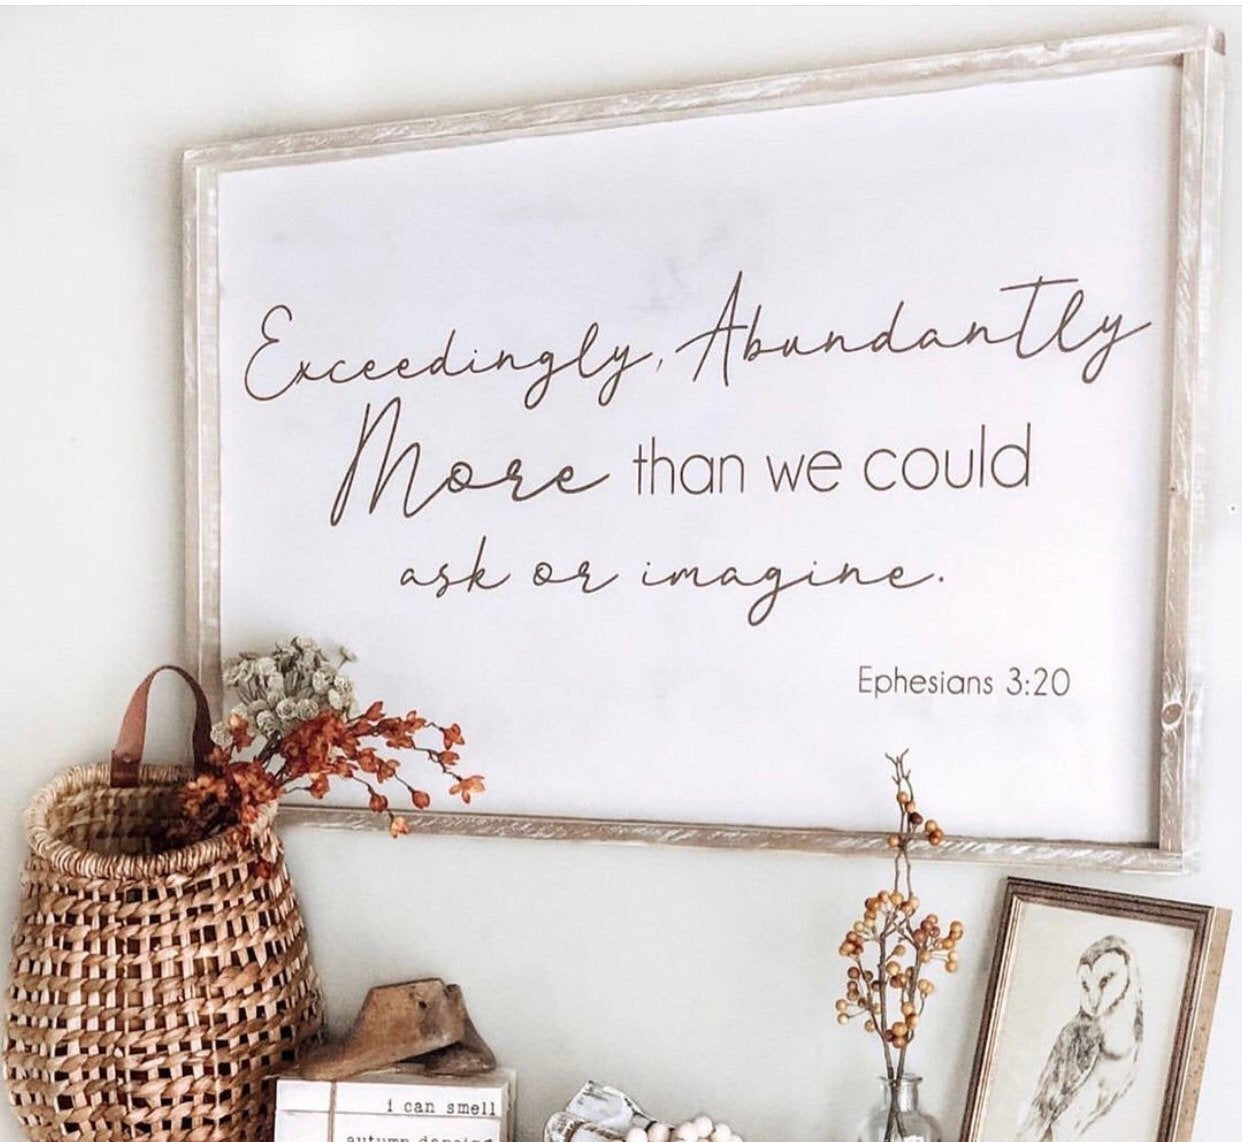 Exceedingly, Abundantly
More than we could
ask or imagine.
Ephesians 3:20
i can smell
autumn dancing